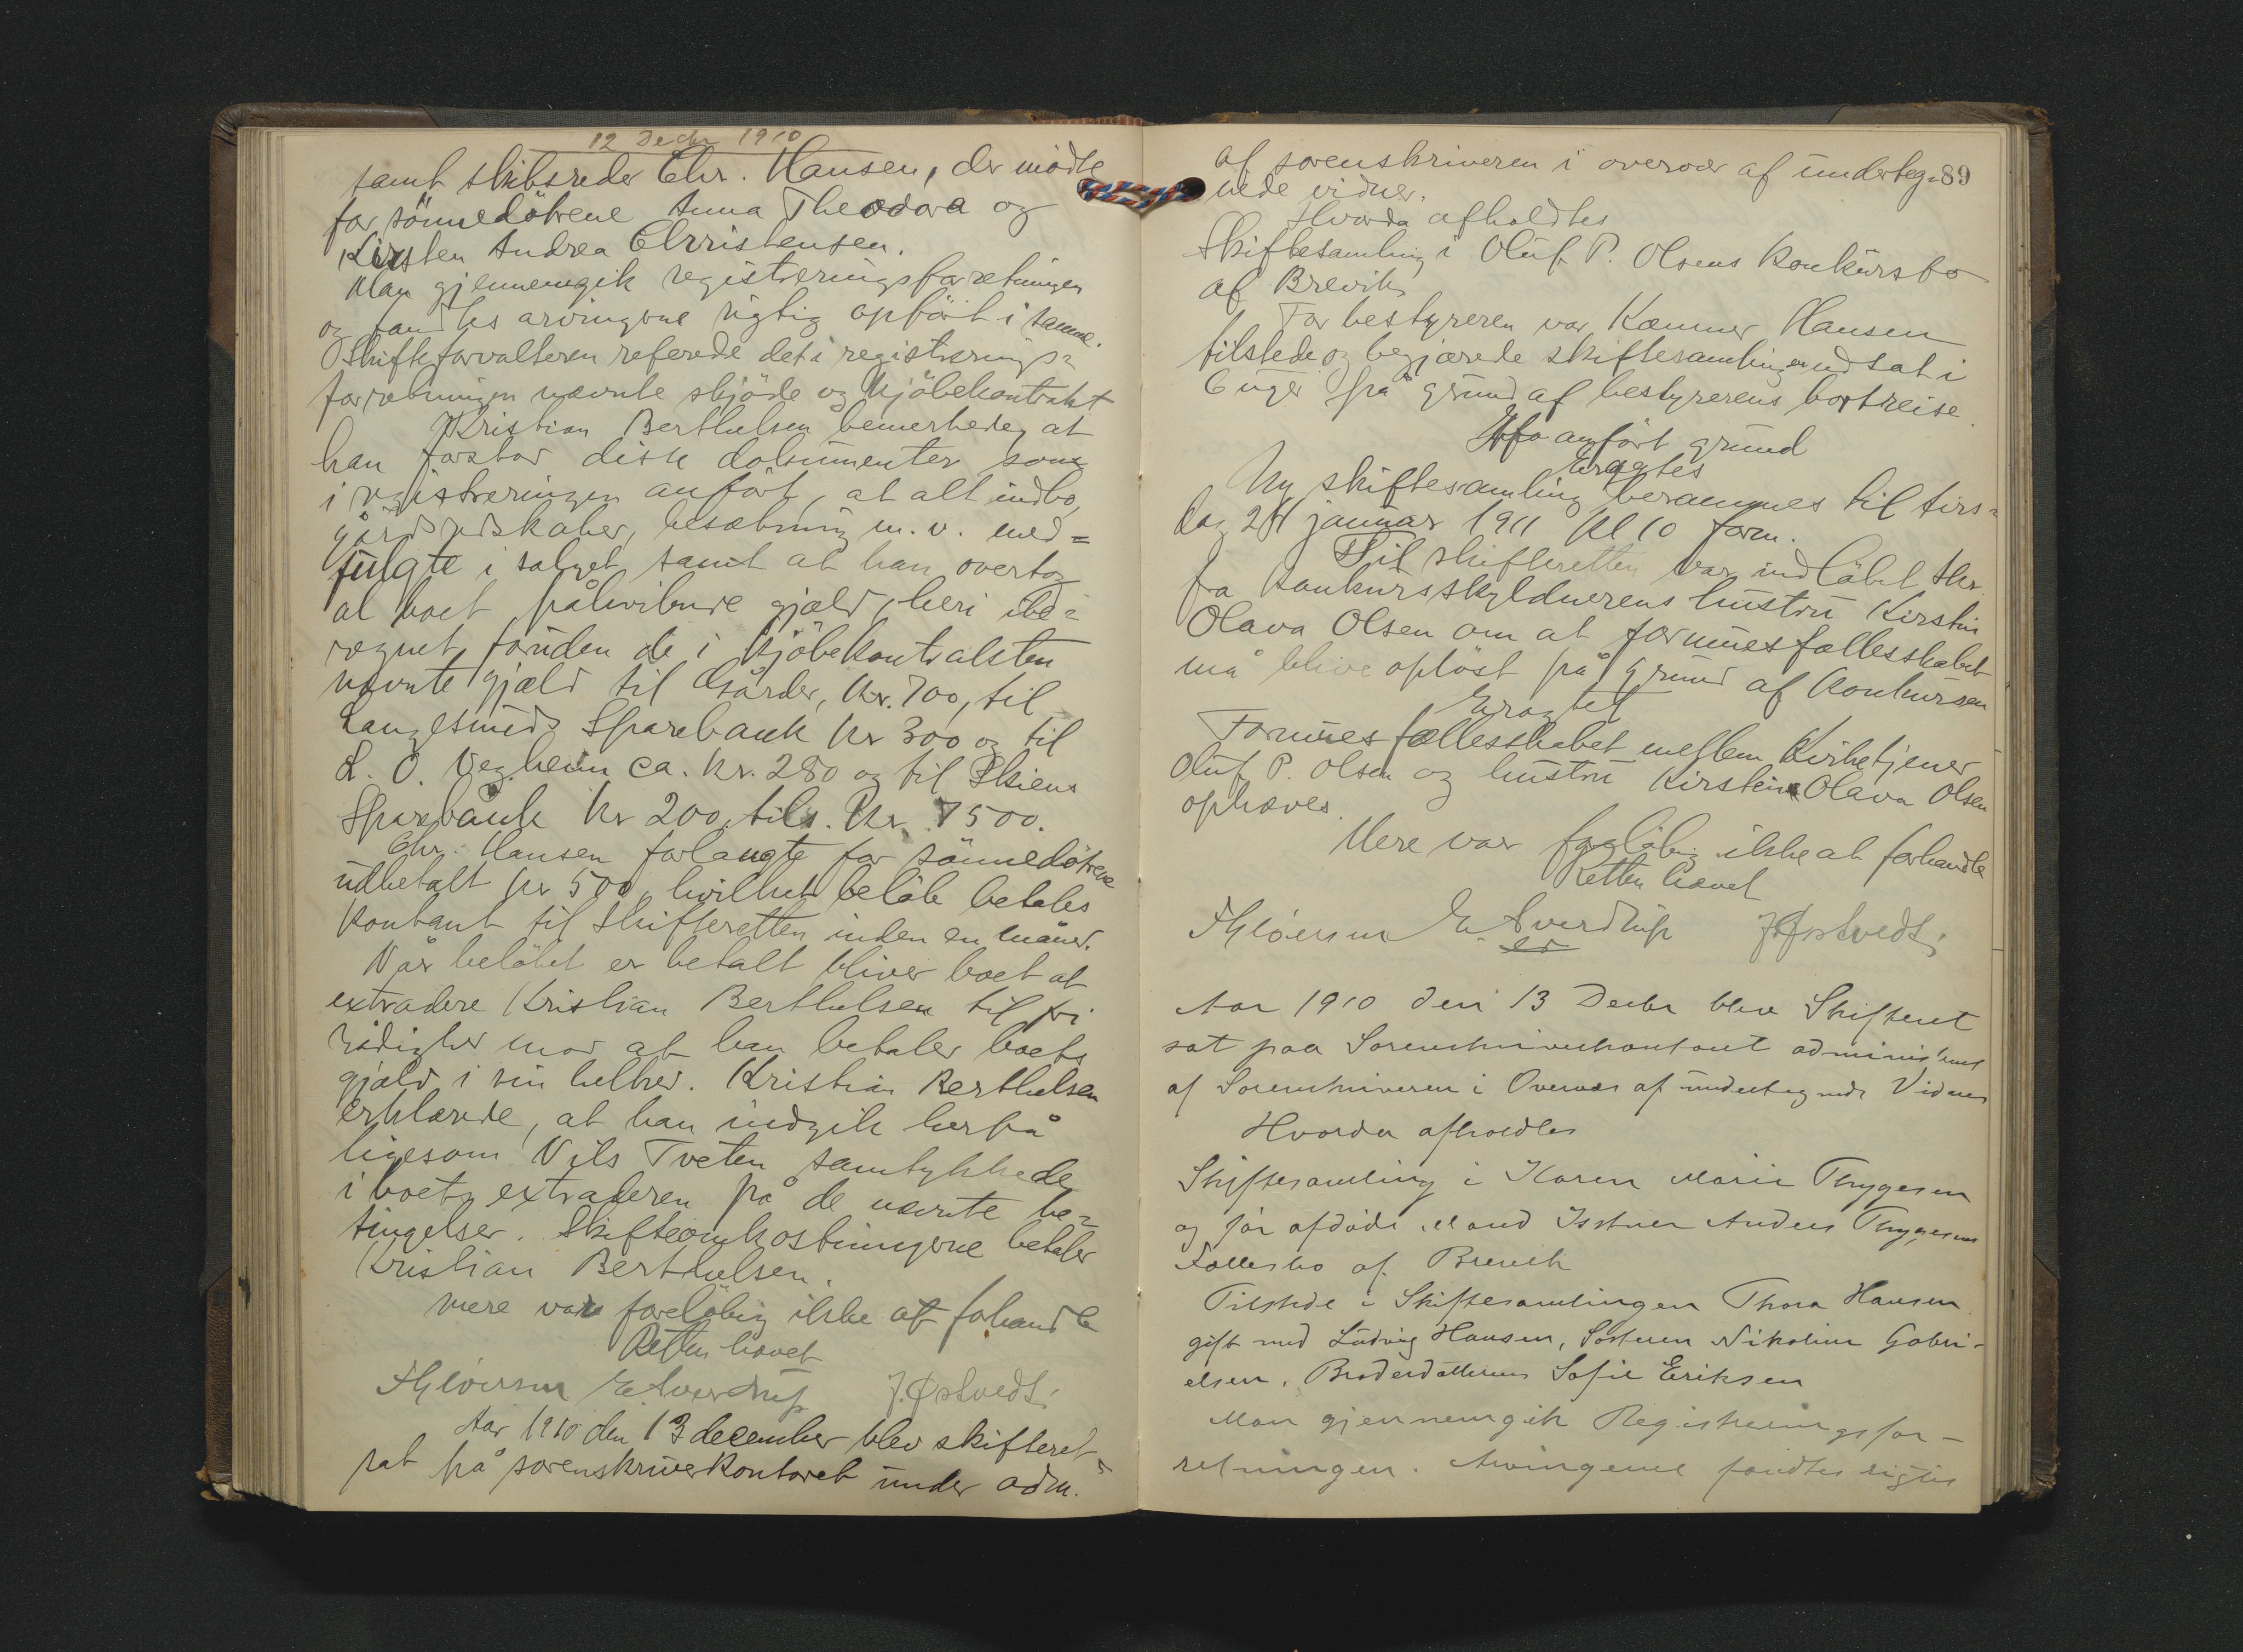 12 Decbr 1910
samt skibsreder Chr. Hansen, der mödte
for sönnedötrene Anna Theodora og
Kirsten Andrea Chrristensen.
Man gjennemgik registreringsforretningen
og fandtes arvingerne rigtig opfört i samme.
Skifteforvalteren referede det i registrerings=
forretningen nævnte skjöde og kjöbekontrakt
Kristian Berthelsen bemerkede, at
han forstod disse dokumenter som
i registreringen anfört, at alt indbo,
gårdsredskaber, besætning m. v. med=
fulgte i salget samt at han overtog
al boet påhvilende gjæld, heri ibe=
regnet foruden de i kjöbekontrakten
nævnte gjæld til Gårder, kr. 700, til
Langesunds Sparebank kr 300 og til
L. O. Vegheim ca. kr. 280 og til Skiens
Sparebank kr 200, tils. kr. 7500.
Chr. Hansen forlangte for sönnedötrene
udbetalt kr 500, hvilket belöb betales
kontant til skifteretten inden en måned.
Når belöbet er betalt bliver boet at
extradere Kristian Berthelsen til fri
rådighed mod at han betaler boets
gjæld i sin helhed. Kristian Berthelsen
erklærede, at han indgik herpå
ligesom Nils Tveten samtykkede
i boets extraderen på de nævnte be=
tingelser. Skifteomkostningerne betaler
Kristian Berthelsen.
Mere var foreløbig ikke at forhandle
Retten hævet
E Sverdrup J. Østvedt.
Aar 1910 den 13 december blev skifteret
sat på sorenskriverkontoret under adm.
af sorenskriveren i overvær af underteg- 89
nede vidner.
Hvorda afholdtes
Skiftesamling i Oluf P. Olsens konkursbo
af Brevik
For bestyreren var Kæmner Hansen
tilstede og begjærede skiftesamlingen udsat i
6 uger på grund af bestyrerens bortreise
Af anfört grund
Eragtes
Ny skiftesamling berammes til tirs=
dag 24 januar 1911 kl 10 form.
Til skifteretten var indlöbet skr.
fra konkursskyldnerens hustru Kirstin
Olava Olsen om at formuesfællesskabet
må blive oplöst på grund af konkursen
Eragtet
Formuesfællesskabet mellem Kirketjener
Oluf P. Olsen og hustru Kirstine Olava Olsen
ophæves.
Mere var foreløbig ikke at forhandle
Retten hævet
E. Sverdrup J Østvedt.
Aar 1910 den 13 Decbr blev Skifteret
sat paa Sorenskriverkontoret administreret
af Sorenskriveren i Overvær af undertegnede Vidner
Hvorda afholdtes
Skiftesamling i Karen Marie Thygesen
og før afdøde Mand Anders Thygesens
Fællesbo af Brevik
Tilstede i Skiftesamlingen Thora Hansen
gift med Ludvig Hansen, Søsteren Nikoline Gabri-
elsen, Broderdatteren Sofie Eriksen
Man gjennemgik Registreringsfor-
retningen. Arvingerne fandtes rigtig